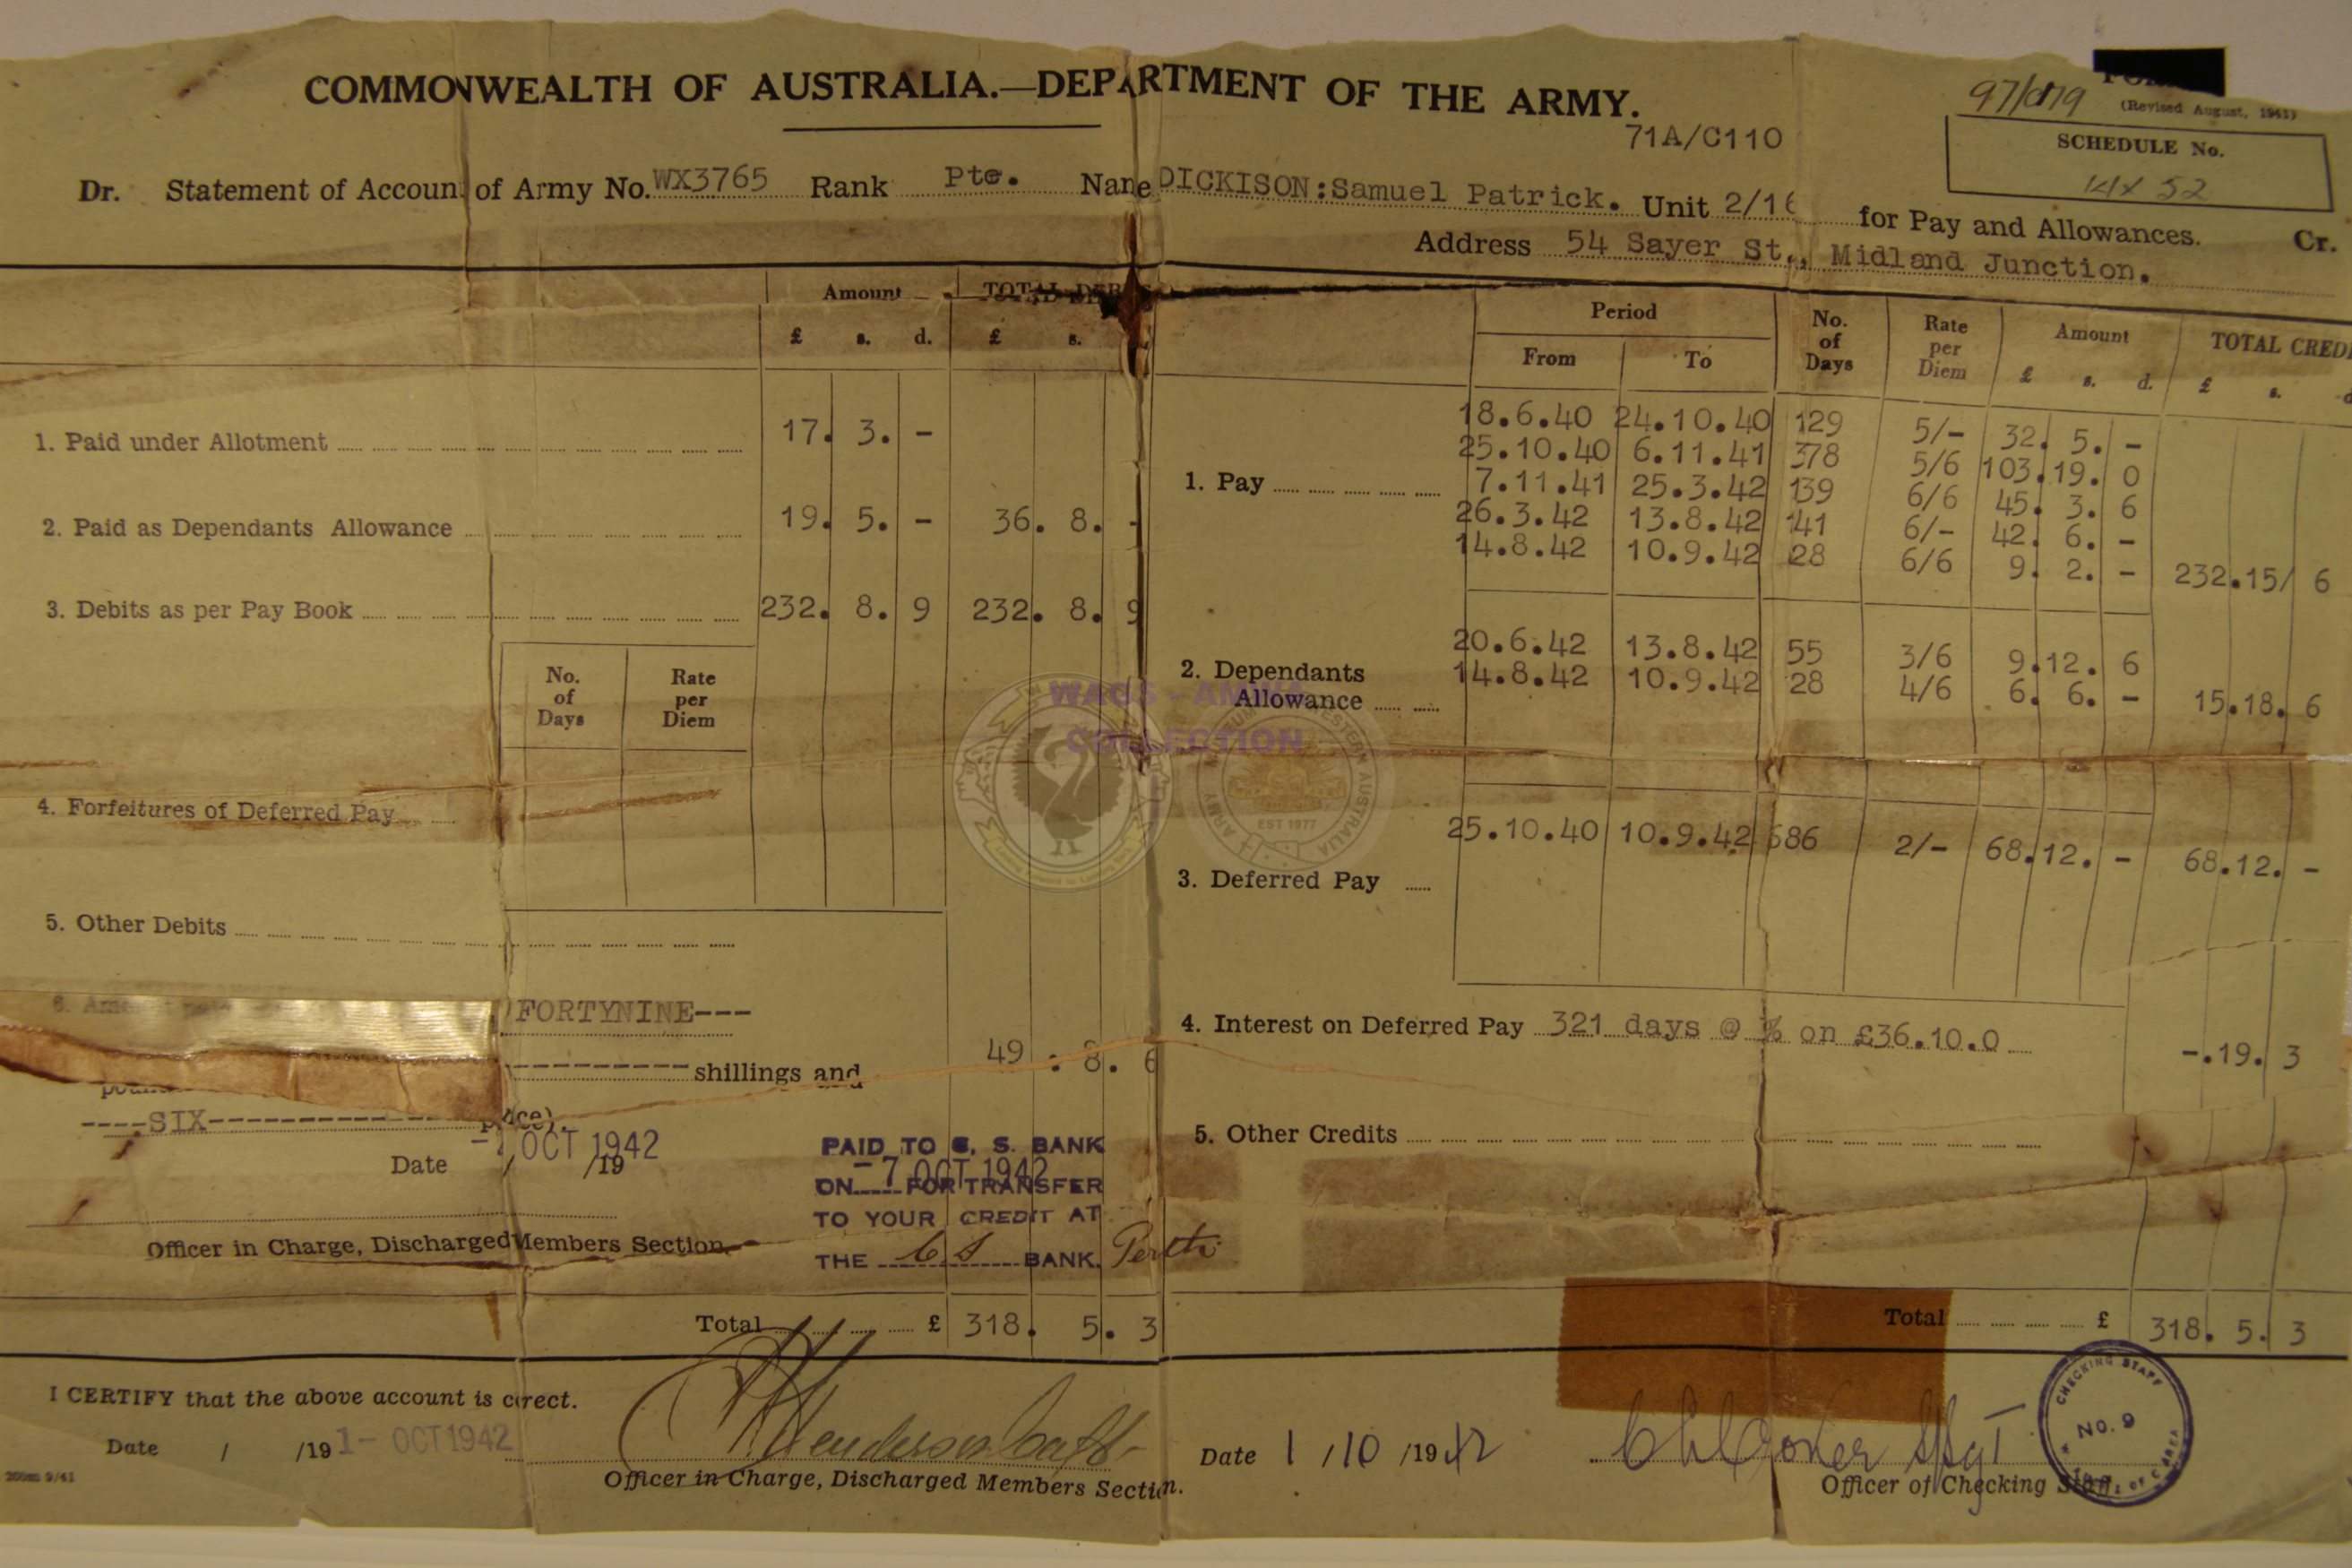 COMMONWEALTH OF AUSTRALIA.—DEPARTMENT OF THE ARMY.
97/
(Revised August, 1941)
71A/C110
SCHEDULE No.
52
Dr. Statement of Account of Army No. WX3765 Rank Pte. Name DICKISON:Samuel Patrick. Unit 2/16 for Pay and Allowances. Cr.
Address 54 Sayer St., Midland Junction.
Amount TOTAL DEB
£ s. d. £ s.
Period No. of Days Rate per Diem Amount TOTAL CREDI
From To £ s. d. £ s. d
1. Paid under Allotment 17. 3. -
2. Paid as Dependants Allowance 19. 5. - 36. 8. -
3. Debits as per Pay Book 232. 8. 9 232. 8. 9
No. of Days Rate per Diem
4. Forfeitures of Deferred Pay
5. Other Debits
FORTYNINE---
---------- shillings and 49 : 8. 6
----SIX---------- pence).
Date - 7 OCT 1942 / /19
Officer in Charge, Discharged Members Section
PAID TO C. S. BANK
ON - 7 OCT 1942 FOR TRANSFER
TO YOUR CREDIT AT
THE C S BANK. Perth
Total £ 318. 5. 3
1. Pay
18.6.40 24.10.40 129 5/- 32. 5. -
25.10.40 6.11.41 378 5/6 103.19. 0
7.11.41 25.3.42 139 6/6 45. 3. 6
26.3.42 13.8.42 141 6/- 42. 6. -
14.8.42 10.9.42 28 6/6 9. 2. - 232.15/ 6
2. Dependants Allowance
20.6.42 13.8.42 55 3/6 9.12. 6
14.8.42 10.9.42 28 4/6 6. 6. - 15.18. 6
WAGS - AMWA
COLLECTION
ARMY MUSEUM WESTERN AUSTRALIA
EST 1977
3. Deferred Pay 25.10.40 10.9.42 686 2/- 68.12. - 68.12. -
4. Interest on Deferred Pay 321 days @ % on £36.10.0 -.19. 3
5. Other Credits
Total £ 318. 5. 3
I CERTIFY that the above account is correct.
Date / /19 1- OCT 1942
Henderson Capt
Officer in Charge, Discharged Members Section.
Date 1 /10 /1942
Sgt
Officer of Checking Staff.
CHECKING STAFF
No. 9
200m 9/41